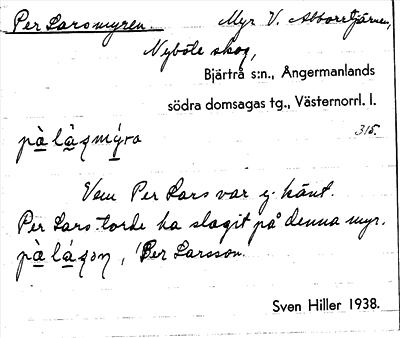 Per Larsmyren. Myr V. Abborrtjärnen,
Nyböle skog,
Bjärtrå s:n., Ångermanlands
södra domsagas tg., Västernorrl. l.
315.
pà làqmýra
Vem Per Lars var ej känt.
Per Lars torde ha slagit på denna myr.
pà láqon, Per Larsson.
Sven Hiller 1938.